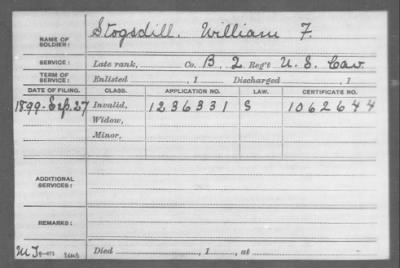 NAME OF SOLDIER: Stogsdill, William F.
SERVICE: Late rank, Co. B, 2 Reg't U. S. Cav
TERM OF SERVICE: Enlisted , 1 Discharged , 1
DATE OF FILING. CLASS. APPLICATION NO. LAW. CERTIFICATE NO.
1899-Sep. 27 Invalid, 1236331 S 1062644
Widow,
Minor,
ADDITIONAL SERVICES:
REMARKS:
Died , 1 , at